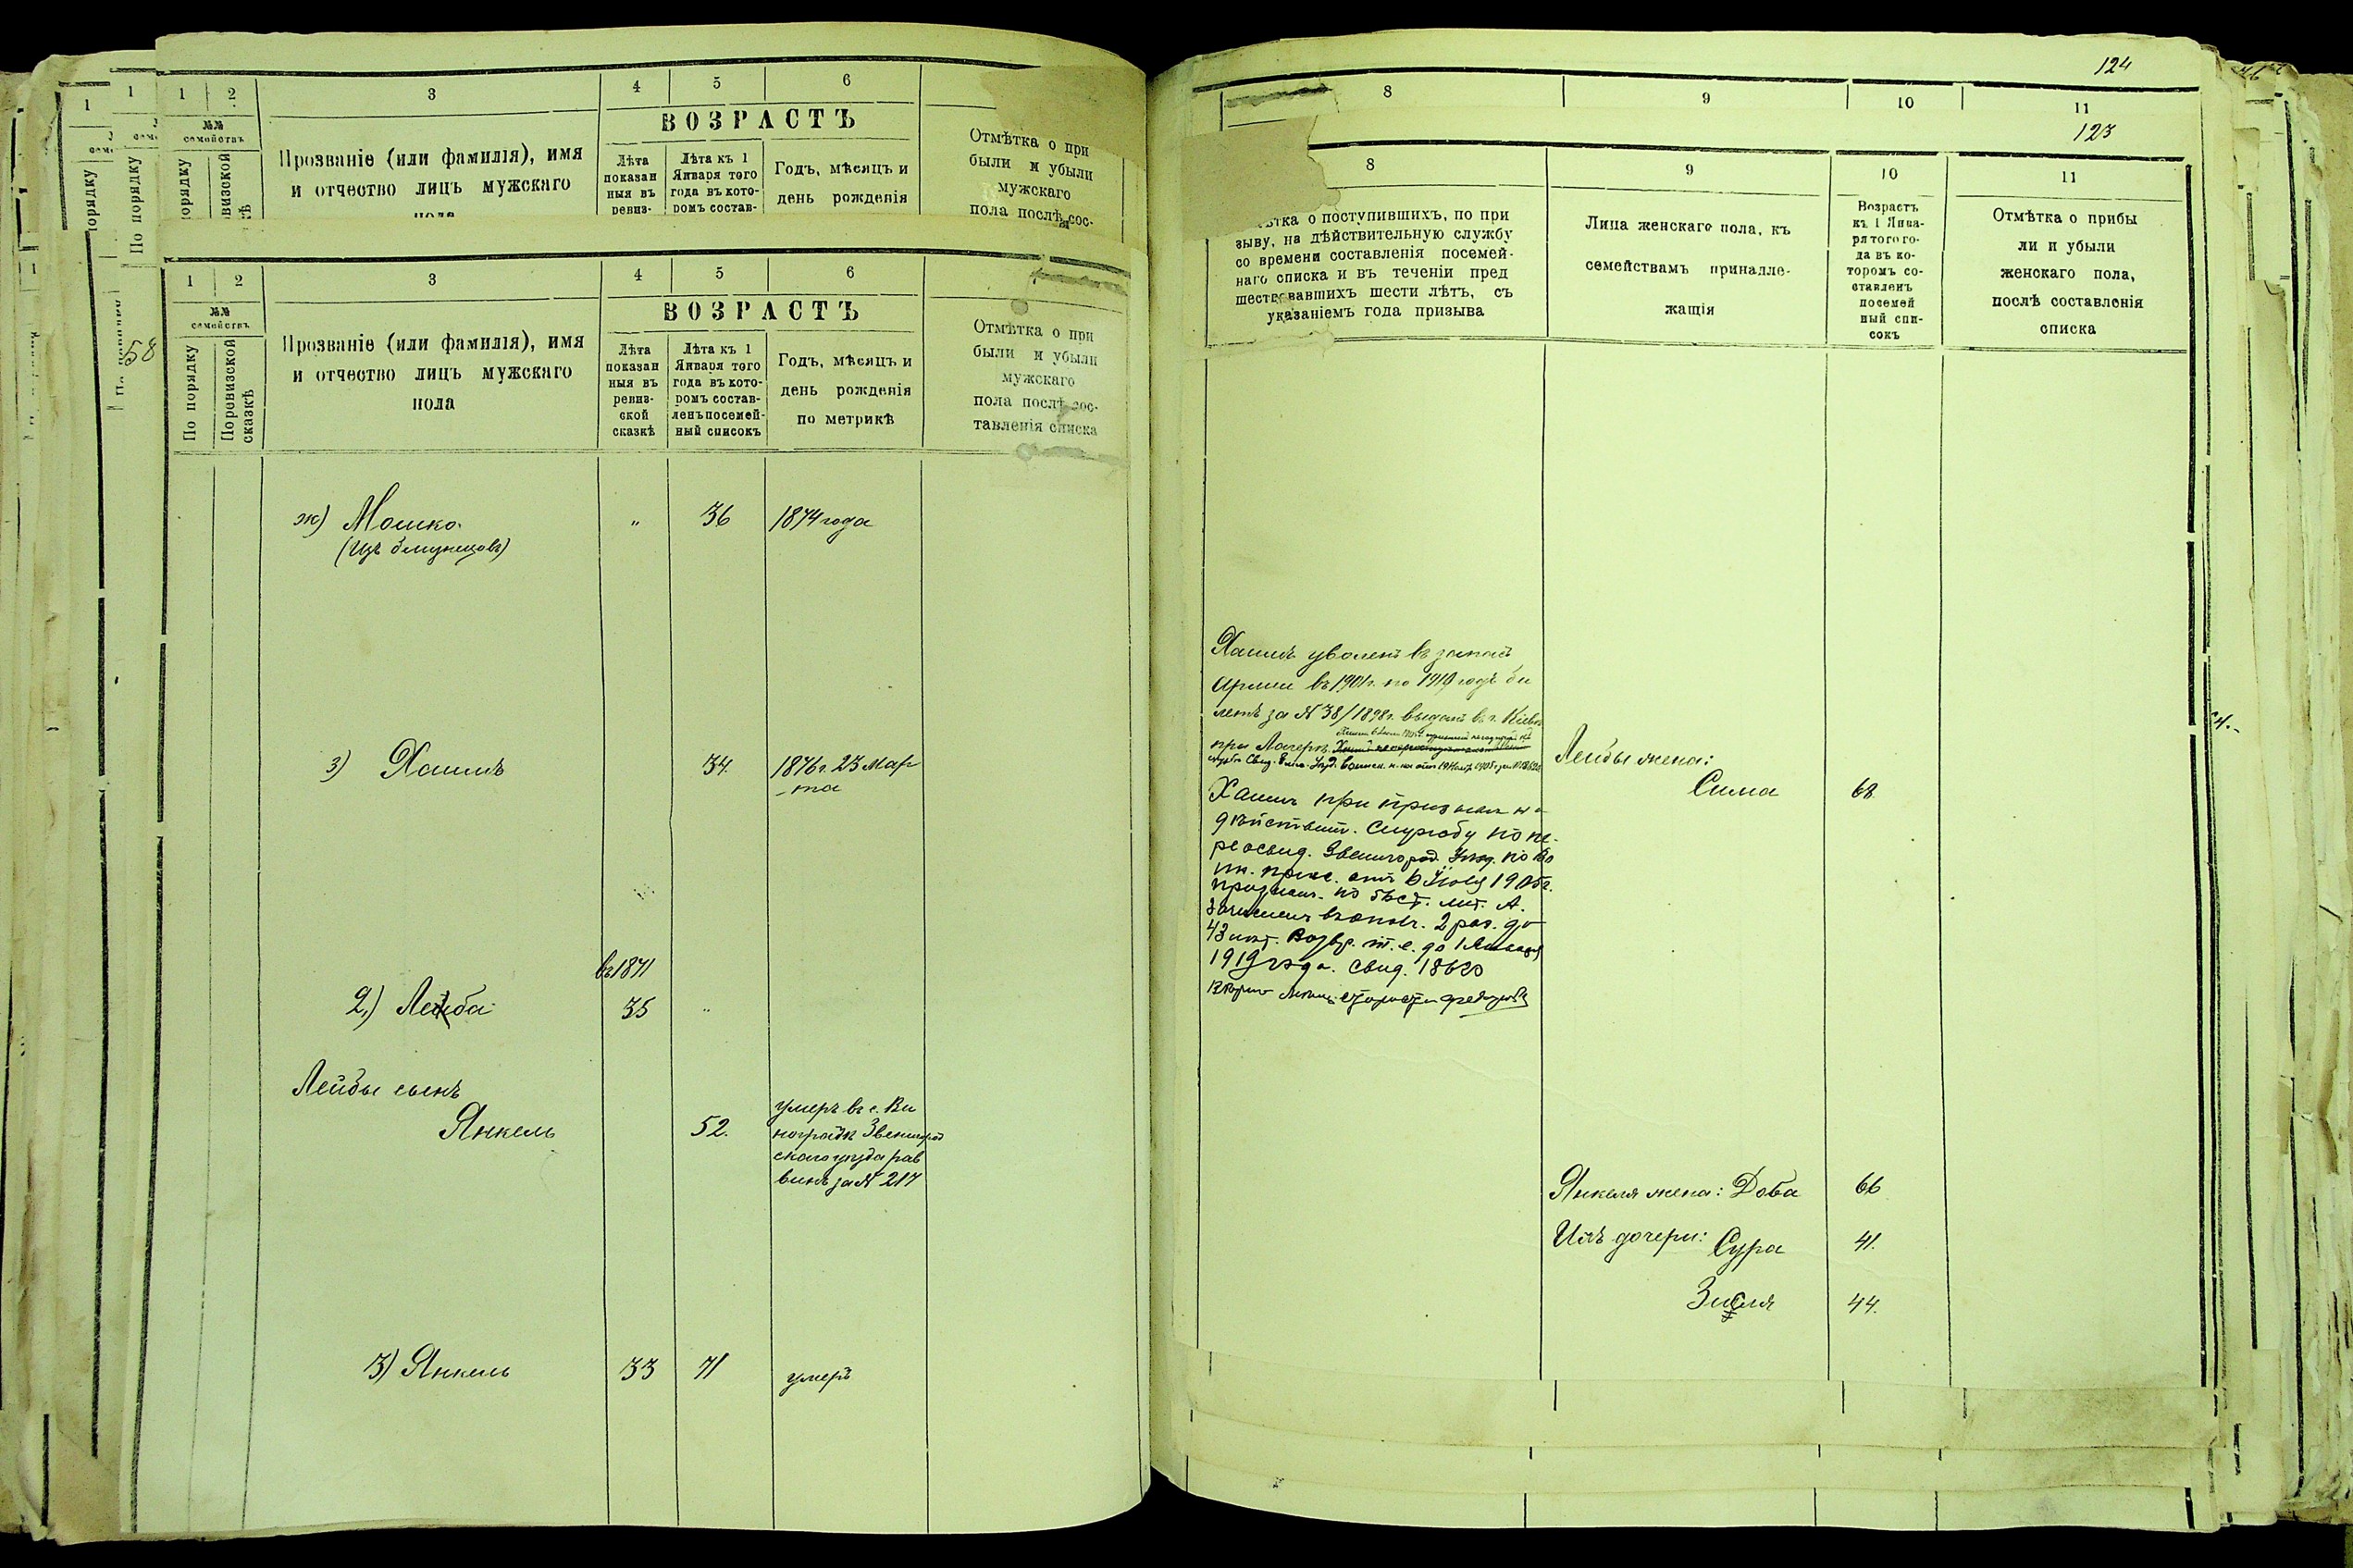 1 2 3 4 5 6
№№ семействъ
ВОЗРАСТЪ
Прозваніе (или фамилія), имя
и отчество лицъ мужскаго
Лѣта
показан
ныя въ
ревиз-
Лѣта къ 1
Января того
года въ кото-
ромъ состав-
Годъ, мѣсяцъ и
день рожденія
Отмѣтка о при
были и убыли
мужскаго
пола послѣ сос-
58
1 2 3 4 5 6
№№
семействъ
По порядку
По ревизской
сказкѣ
Прозваніе (или фамилія), имя
и отчество лицъ мужскаго
пола
ВОЗРАСТЪ
Лѣта
показан
ныя въ
ревиз-
ской
сказкѣ
Лѣта къ 1
Января того
года въ кото-
ромъ состав-
ленъ посемей-
ный списокъ
Годъ, мѣсяцъ и
день рожденія
по метрикѣ
Отмѣтка о при
были и убыли
мужскаго
пола послѣ сос-
тавленія списка
ж) Мошко " 36 1874 года
з) Хаимъ 34. 1876 г. 23 Мар
та
въ 1871
2) Лейба 35 "
Лейбы сынъ
Янкель 52.
умеръ въ с. Ви
ноградѣ Звенигород
скаго уѣзда рав
винъ за № 217
3) Янкель 33 71 умеръ
124
8 9 10 11
123
8 9 10 11
тка о поступившихъ, по при
зыву, на дѣйствительную службу
со времени составленія посемей-
наго списка и въ теченіи пред
шествовавшихъ шести лѣтъ, съ
указаніемъ года призыва
Лица женскаго пола, къ
семействамъ принадле-
жащія
Возрастъ
къ 1 Янва-
ря того го-
да въ ко-
торомъ со-
ставленъ
посемей
ный спи-
сокъ
Отмѣтка о прибы
ли и убыли
женскаго пола,
послѣ составленія
списка
Хаимъ уволенъ въ запасъ
Арміи въ 1901 г. по 1919 годъ би
летъ за № 38/1898 г. выданъ въ г. Кіевѣ
Хаимъ при призывѣ на
дѣйствит. службу по пе-
реосвид. Звенигород. Уѣзд. по Во
ин. прис. отъ 6 Іюля 1905 г.
признан. по 5 ст. лит. А.
зачислен. въ ополч. 2 раз. до
43 лѣт. возвр. т. е. до 1 Января
1919 года. свид. 18620
Лейбы жена:
Сима 68
Янкеля жена: Доба 66
Ихъ дочери: Сура 41.
Зисля 44.